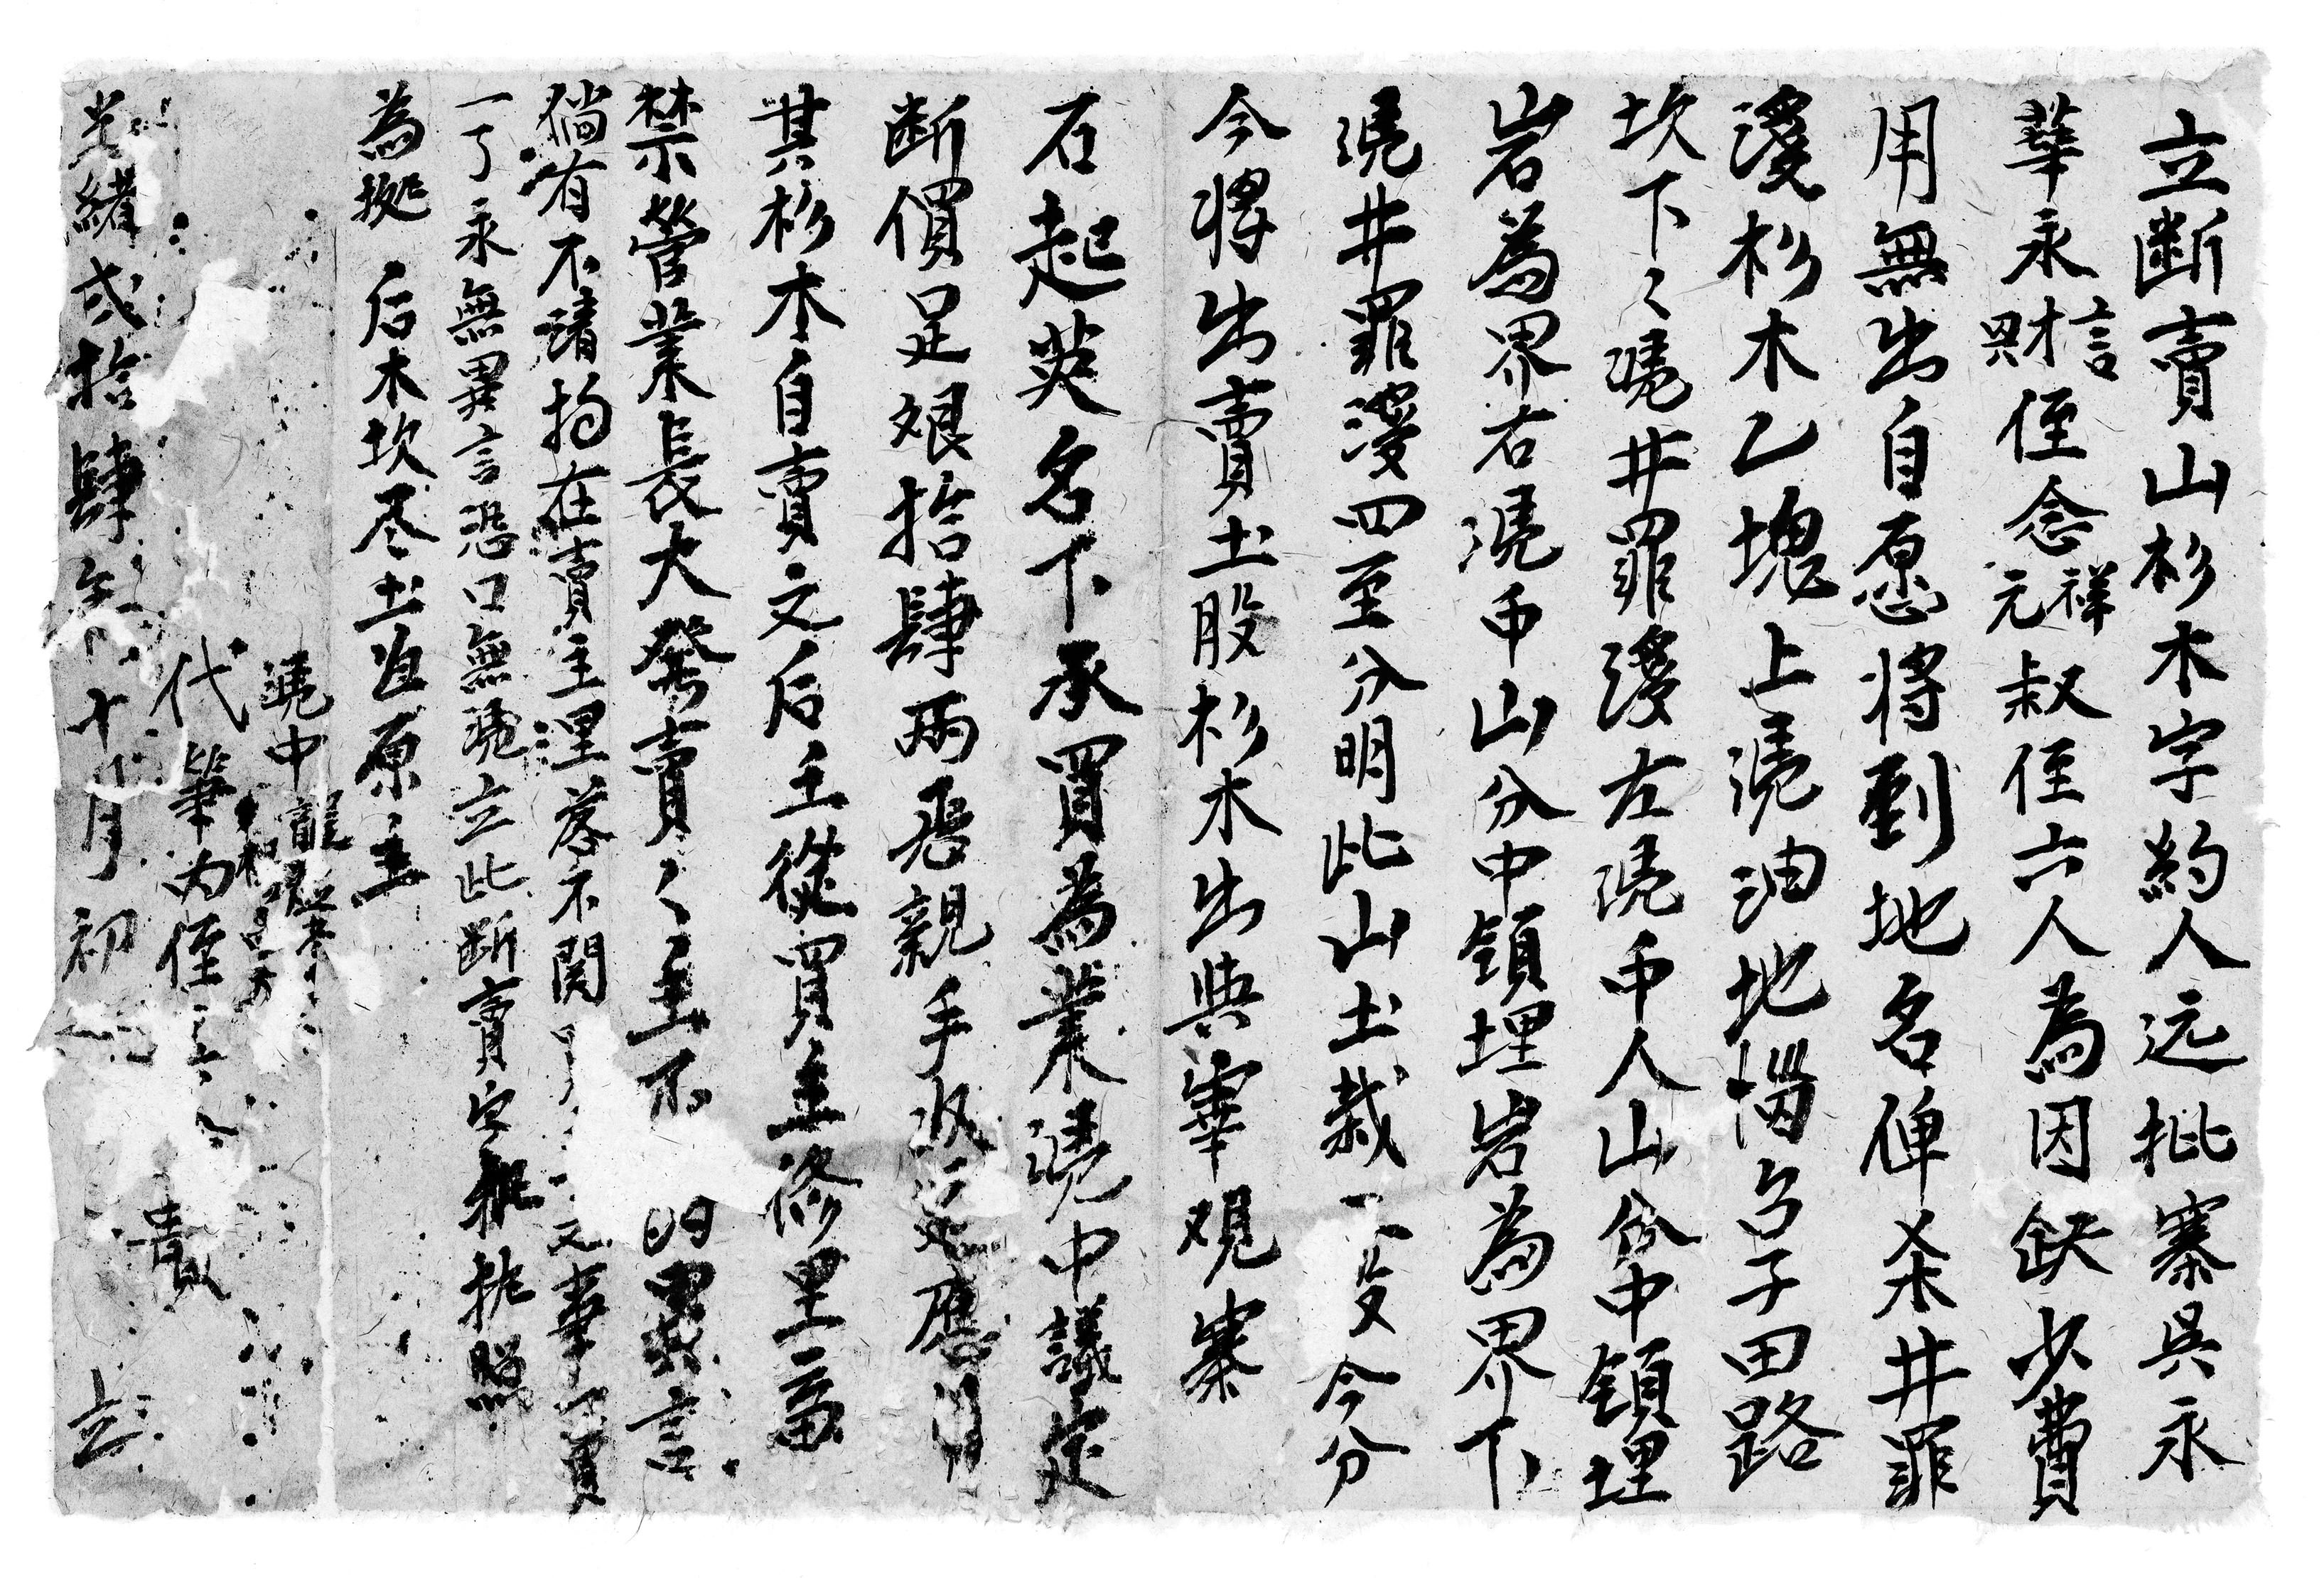 立断賣山杉木字約人远批寨吳永
華永言財侄念祥元叔侄六人為因缺少費
用無出自愿將到地名俾杀井罪
溇杉木乙塊上凴油地垴勾子田路
坎下々凴井罪溇左凴中人山分中領埋
岩為界右凴中山分中領埋岩為界下
凴井罪溇四至分明此山土栽今分
今將出賣土股杉木出與寨观寨
石起英名下承買為業凴中議定
断價足艰拾肆兩恶親手收足應用
其杉木自賣之后主從買主修里畜
禁管業長大發賣之主不異言
倘有不清拘在賣主理落不関事一賣
一了永無異言恐口無凴立此断賣字推批照
為㨿 后木坎尽土值原主
凴中龍
代筆内侄
責
光緒弍拾肆年十月初 立